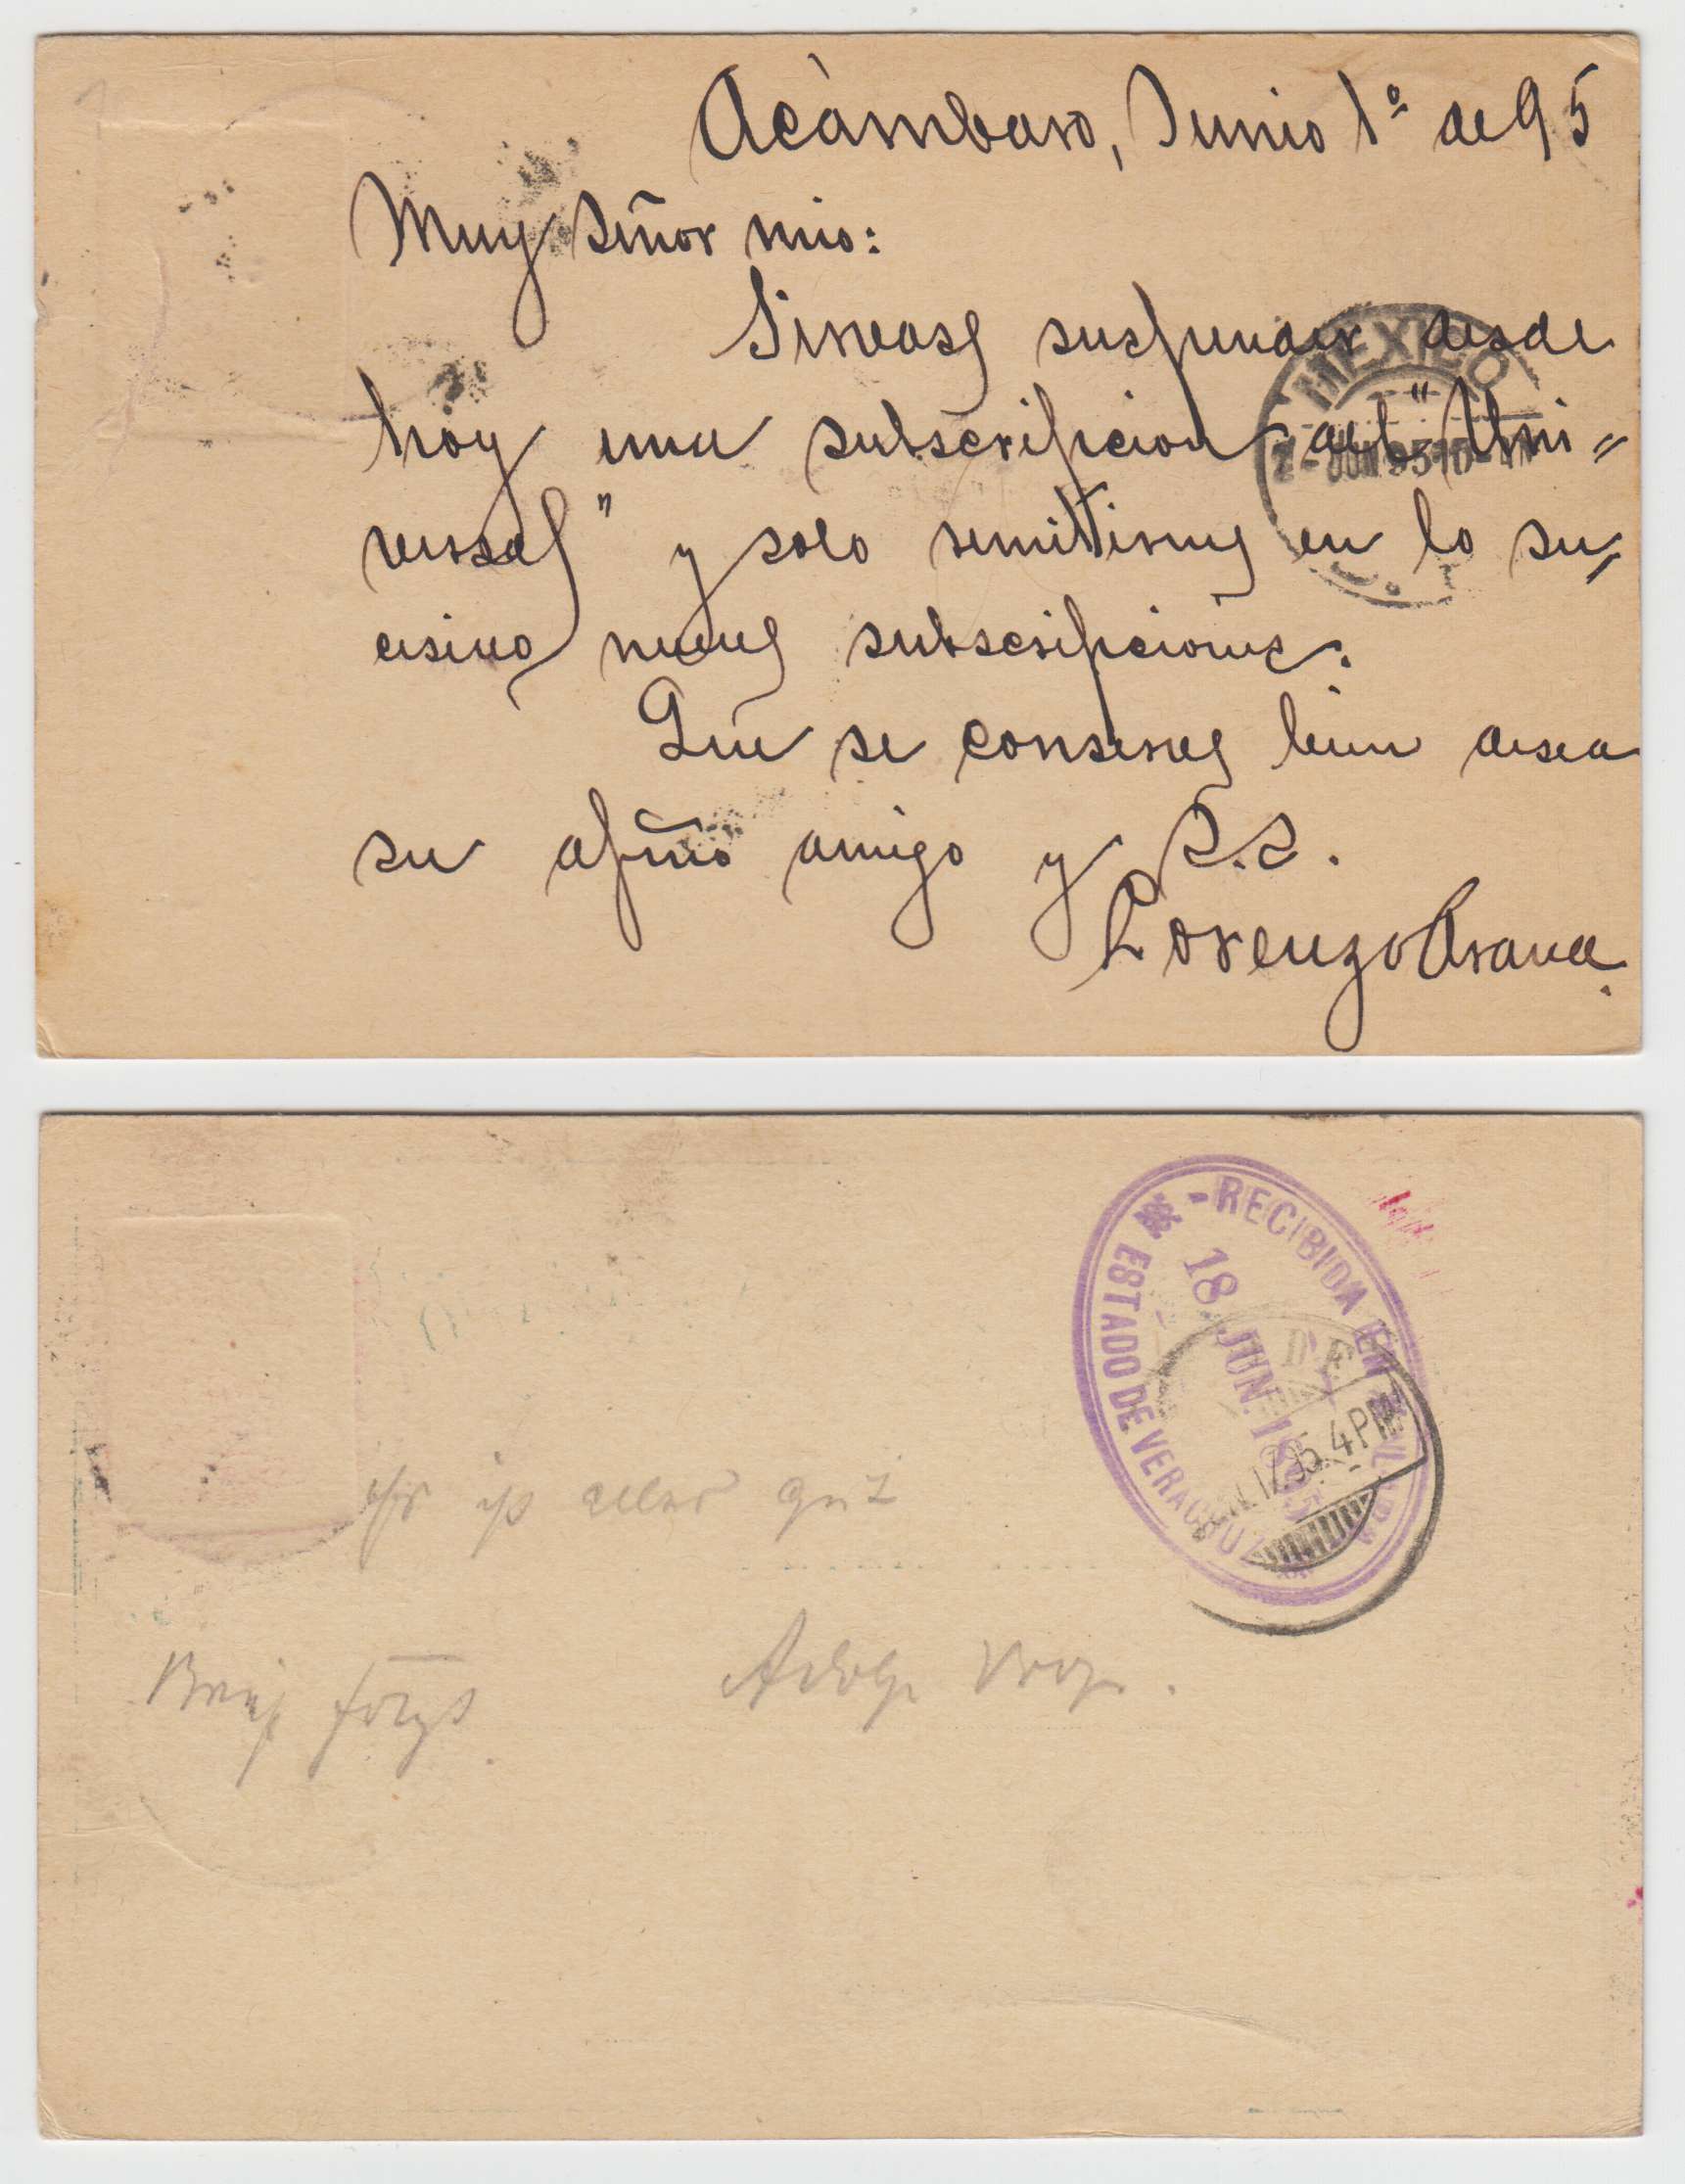 Acàmbaro, Junio 1º de 95
Muy Señor mio:
Sirvase suspender desde
hoy una subscripcion del "Uni=
versal" y solo remitirme en lo su,
cesivo nueve subscripciones.
Que se conserve bien desea
su afmo amigo y S.S.
Lorenzo Arana.
MEXICO
2-JUN 95 10-
- RECIBIDA EN
18 JUN. 1895
ESTADO DE VERACRUZ
95.4PM
ist alles gut
Brief folgt.
Adolf